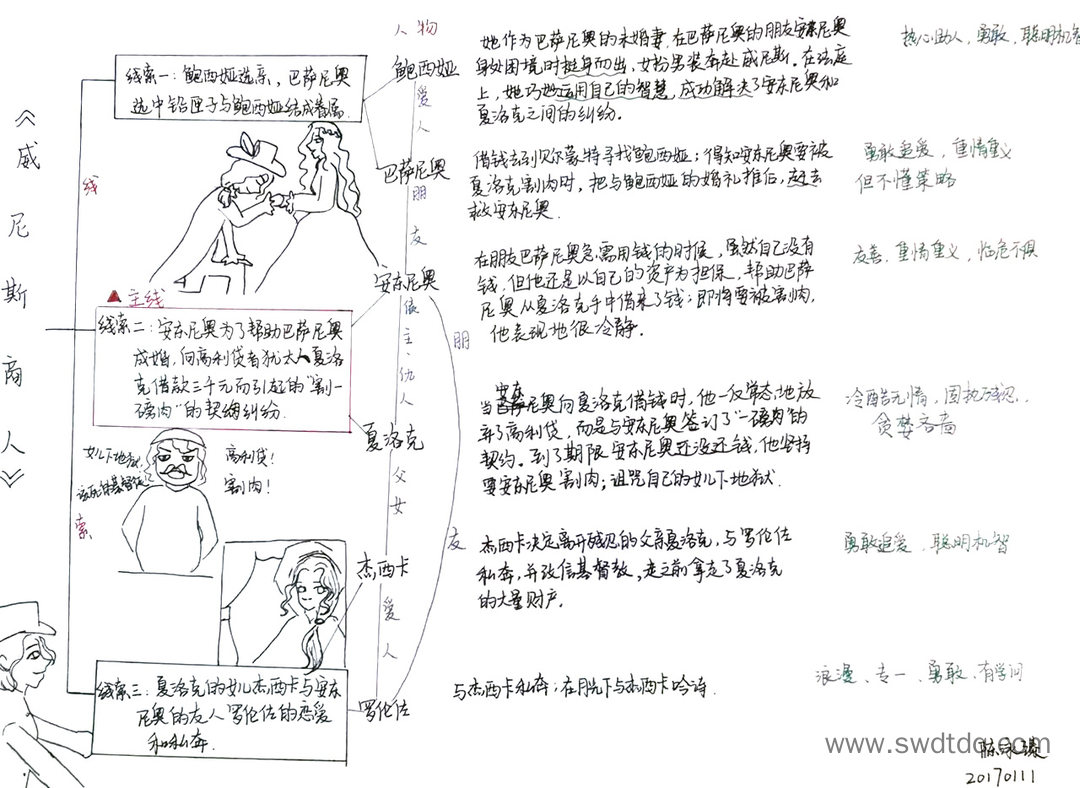 《威尼斯商人》
线索
人物
线索一：鲍西娅选亲，巴萨尼奥
选中铅匣子与鲍西娅结成眷属.
▲主线
线索二：安东尼奥为了帮助巴萨尼奥
成婚，向高利贷者犹太人夏洛
克借款三千元而引起的“割一
磅肉”的契约纠纷.
女儿下地狱！
高利贷！
割肉！
线索三：夏洛克的女儿杰西卡与安东
尼奥的友人罗伦佐的恋爱
和私奔.
鲍西娅
爱人
巴萨尼奥
朋友
安东尼奥
债主·仇人
夏洛克
父女
杰西卡
爱人
罗伦佐
朋友
她作为巴萨尼奥的未婚妻，在巴萨尼奥的朋友安东尼奥
身处困境时挺身而出，女扮男装奔赴威尼斯。在法庭
上，她巧妙运用自己的智慧，成功解决了安东尼奥和
夏洛克之间的纠纷。
热心助人，勇敢，聪明机智
借钱去到贝尔蒙特寻找鲍西娅；得知安东尼奥要被
夏洛克割肉时，把与鲍西娅的婚礼推后，赶去
救安东尼奥.
勇敢追爱，重情重义
但不懂策略
在朋友巴萨尼奥急需用钱的时候，虽然自己没有
钱，但他还是以自己的资产为担保，帮助巴萨
尼奥从夏洛克手中借来了钱；即将要被割肉，
他表现地很冷静.
友善，重情重义，临危不惧
当安东尼奥向夏洛克借钱时，他一反常态地放
弃了高利贷，而是与安东尼奥签订了“一磅肉”的
契约。到了期限安东尼奥还没还钱，他坚持
要安东尼奥割肉；诅咒自己的女儿下地狱.
冷酷无情，固执残忍，
贪婪吝啬
杰西卡决定离开残忍的父亲夏洛克，与罗伦佐
私奔，并改信基督教，走之前拿走了夏洛克
的大量财产.
勇敢追爱，聪明机智
与杰西卡私奔；在月光下与杰西卡吟诗.
浪漫、专一、勇敢、有学问
www.swdtdq.com
20170111